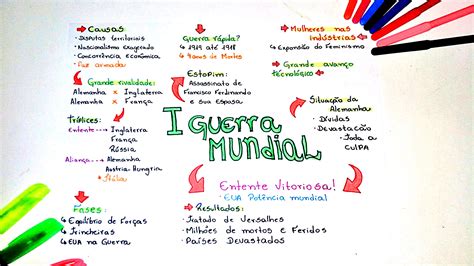 Causas
• Disputas territoriais
• Nacionalismo exagerado
• Concorrência econômica
• Paz armada
Grande rivalidade:
Alemanha x Inglaterra
Alemanha x França
Tríplices:
Entente → Inglaterra
França
Rússia
Aliança → Alemanha
Áustria-Hungria
* Itália
Fases:
↳ Equilíbrio de Forças
↳ Trincheiras
↳ EUA na Guerra
Guerra rápida?
↳ 1914 até 1918
↳ de Mortes
Estopim:
Assassinato de
Francisco Ferdinando
e sua Esposa
I GUERRA
MUNDIAL
Entente Vitoriosa!
• EUA Potência mundial
→ Resultados:
• Tratado de Versalhes
• Milhões de mortos e Feridos
• Países Devastados
Mulheres nas
Indústrias
↳ Expansão do Feminismo
Grande avanço
tecnológico
Situação da
Alemanha
• Dívidas
• Devastação
• Toda a
CULPA